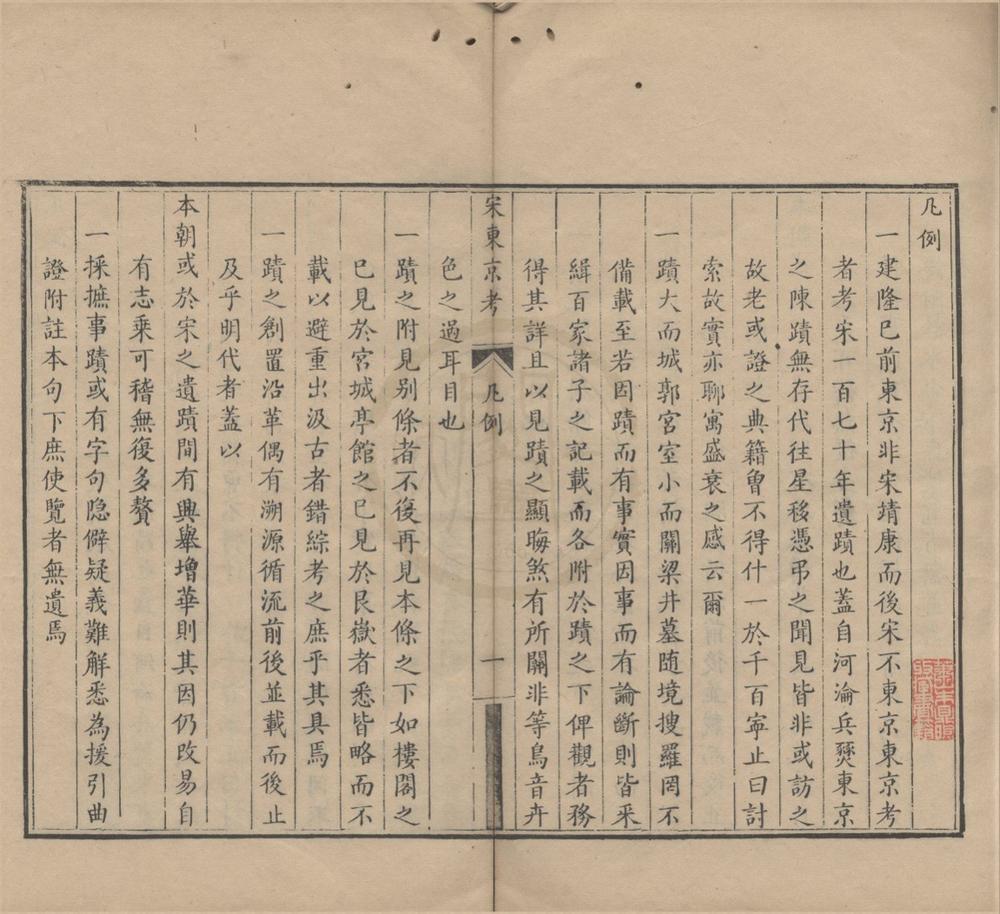 凡例
一建隆已前東京非宋靖康而後宋不東京東京考
者考宋一百七十年遺蹟也蓋自河淪兵燹東京
之陳蹟無存代往星移憑弔之聞見皆非或訪之
故老或證之典籍曾不得什一於千百寧止曰討
索故實亦聊寓盛衰之感云爾
一蹟大而城郭宮室小而關梁井墓隨境搜羅罔不
備載至若因蹟而有事實因事而有論斷則皆采
緝百家諸子之記載而各附於蹟之下俾觀者務
得其詳且以見蹟之顯晦煞有所關非等鳥音卉
色之過耳目也
宋東京考 凡例 一
一蹟之附見別條者不復再見本條之下如樓閣之
已見於宮城亭館之已見於艮嶽者悉皆略而不
載以避重出汲古者錯綜考之庶乎其具焉
一蹟之創置沿革偶有溯源循流前後並載而後止
及乎明代者蓋以
本朝或於宋之遺蹟間有興舉增華則其因仍改易自
有志乘可稽無復多贅
一採摭事蹟或有字句隱僻疑義難解悉為援引曲
證附註本句下庶使覽者無遺焉